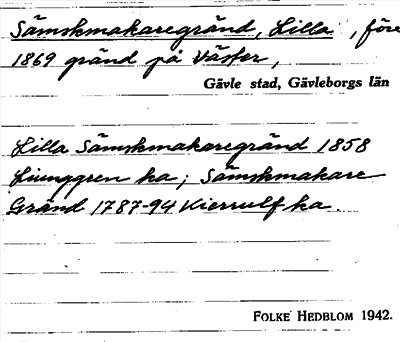 Sämskmakaregränd, Lilla, före
1869 gränd på Väster,
Gävle stad, Gävleborgs län
Lilla Sämskmakaregränd 1858
Ljunggren ka; Sämskmakare
Gränd 1787-94 Kierrulf ka.
FOLKE HEDBLOM 1942.